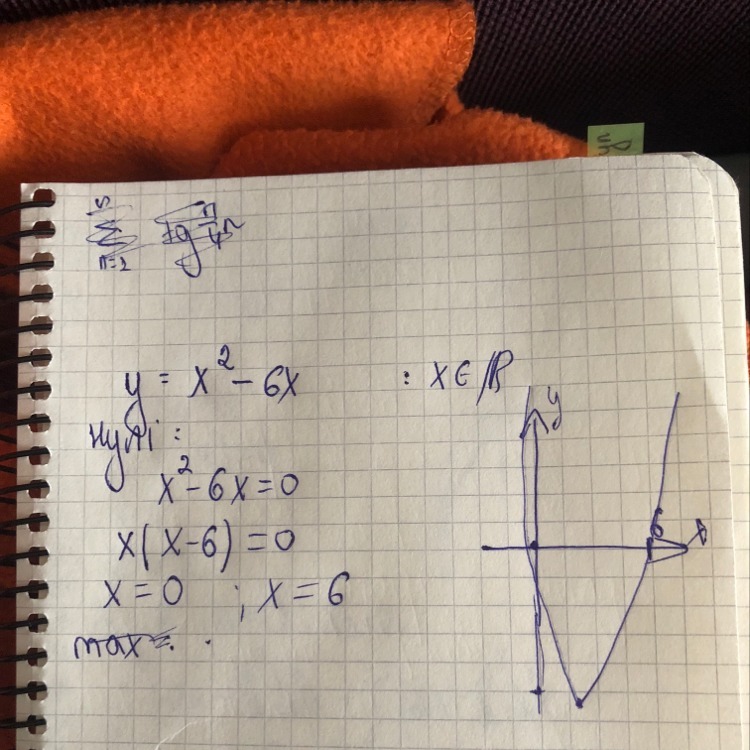 y = x² - 6x : x ∈ ℝ
нулі :
x² - 6x = 0
x(x - 6) = 0
x = 0 ; x = 6
max = .
y
6
x